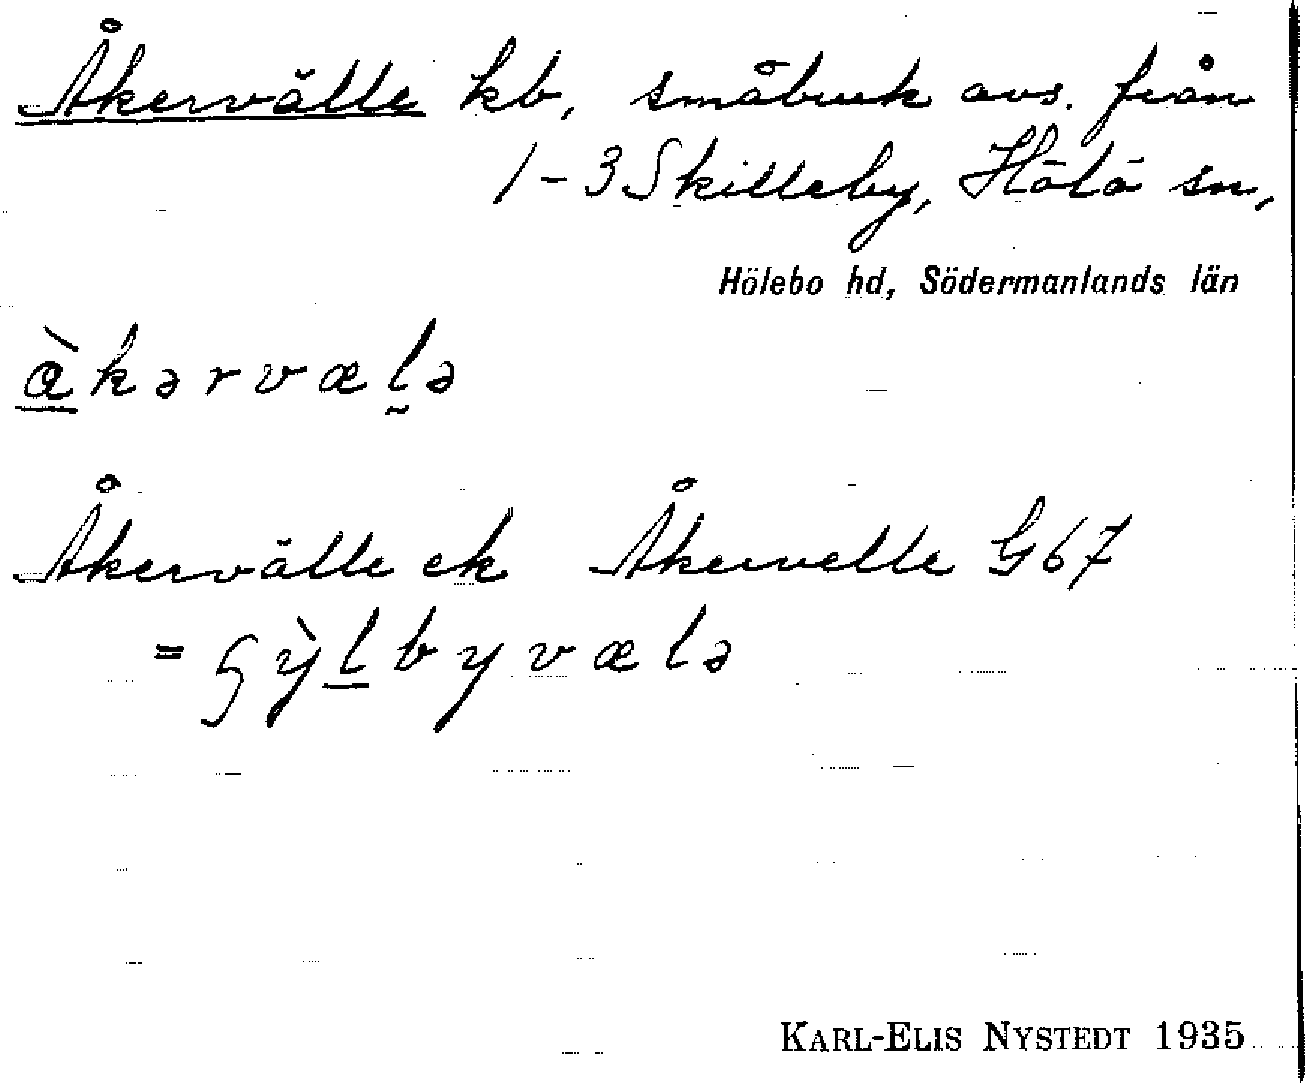 Åkervälle kb, småbruk avs. från
1-3 Skilleby, Hölö sn,
Hölebo hd, Södermanlands län
àkərvælə
Åkervälle ek Åkervelle G 67
= ʂỳlbyvælə
KARL-ELIS NYSTEDT 1935